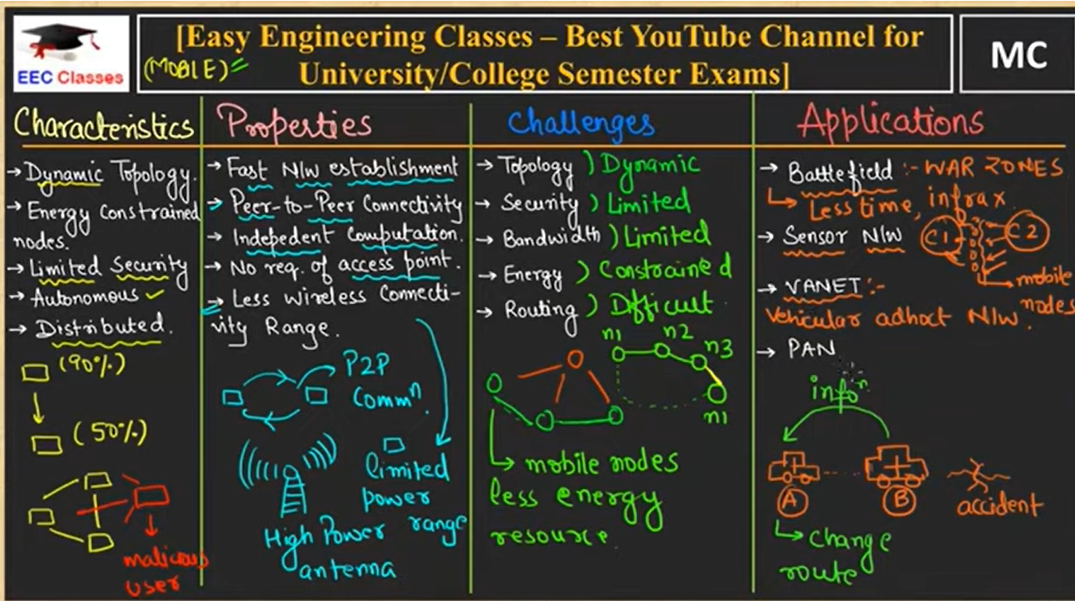 EEC Classes
[Easy Engineering Classes – Best YouTube Channel for
University/College Semester Exams]
(MOBILE)
MC
Characteristics
→ Dynamic Topology.
→ Energy Constrained
nodes.
→ Limited Security
→ Autonomous ✓
→ Distributed.
(90%)
(50%)
malicious
user
Properties
→ Fast N/w establishment
→ Peer-to-Peer Connectivity
→ Indepedent Computation.
→ No req. of access point.
→ Less wireless Connecti-
vity Range.
P2P
Commⁿ.
limited
power
range
High Power
antenna
Challenges
→ Topology ) Dynamic
→ Security ) Limited
→ Bandwidth ) Limited
→ Energy ) Constrained
→ Routing ) Difficult
n1 n2 n3
n1
mobile nodes
less energy
resource.
Applications
→ Battlefield :- WAR ZONES
Less time, infrax.
→ Sensor N/w
C1 C2
mobile
nodes
→ VANET :-
Vehicular adhoct N/w.
→ PAN
infoⁿ
A B
accident
change
route